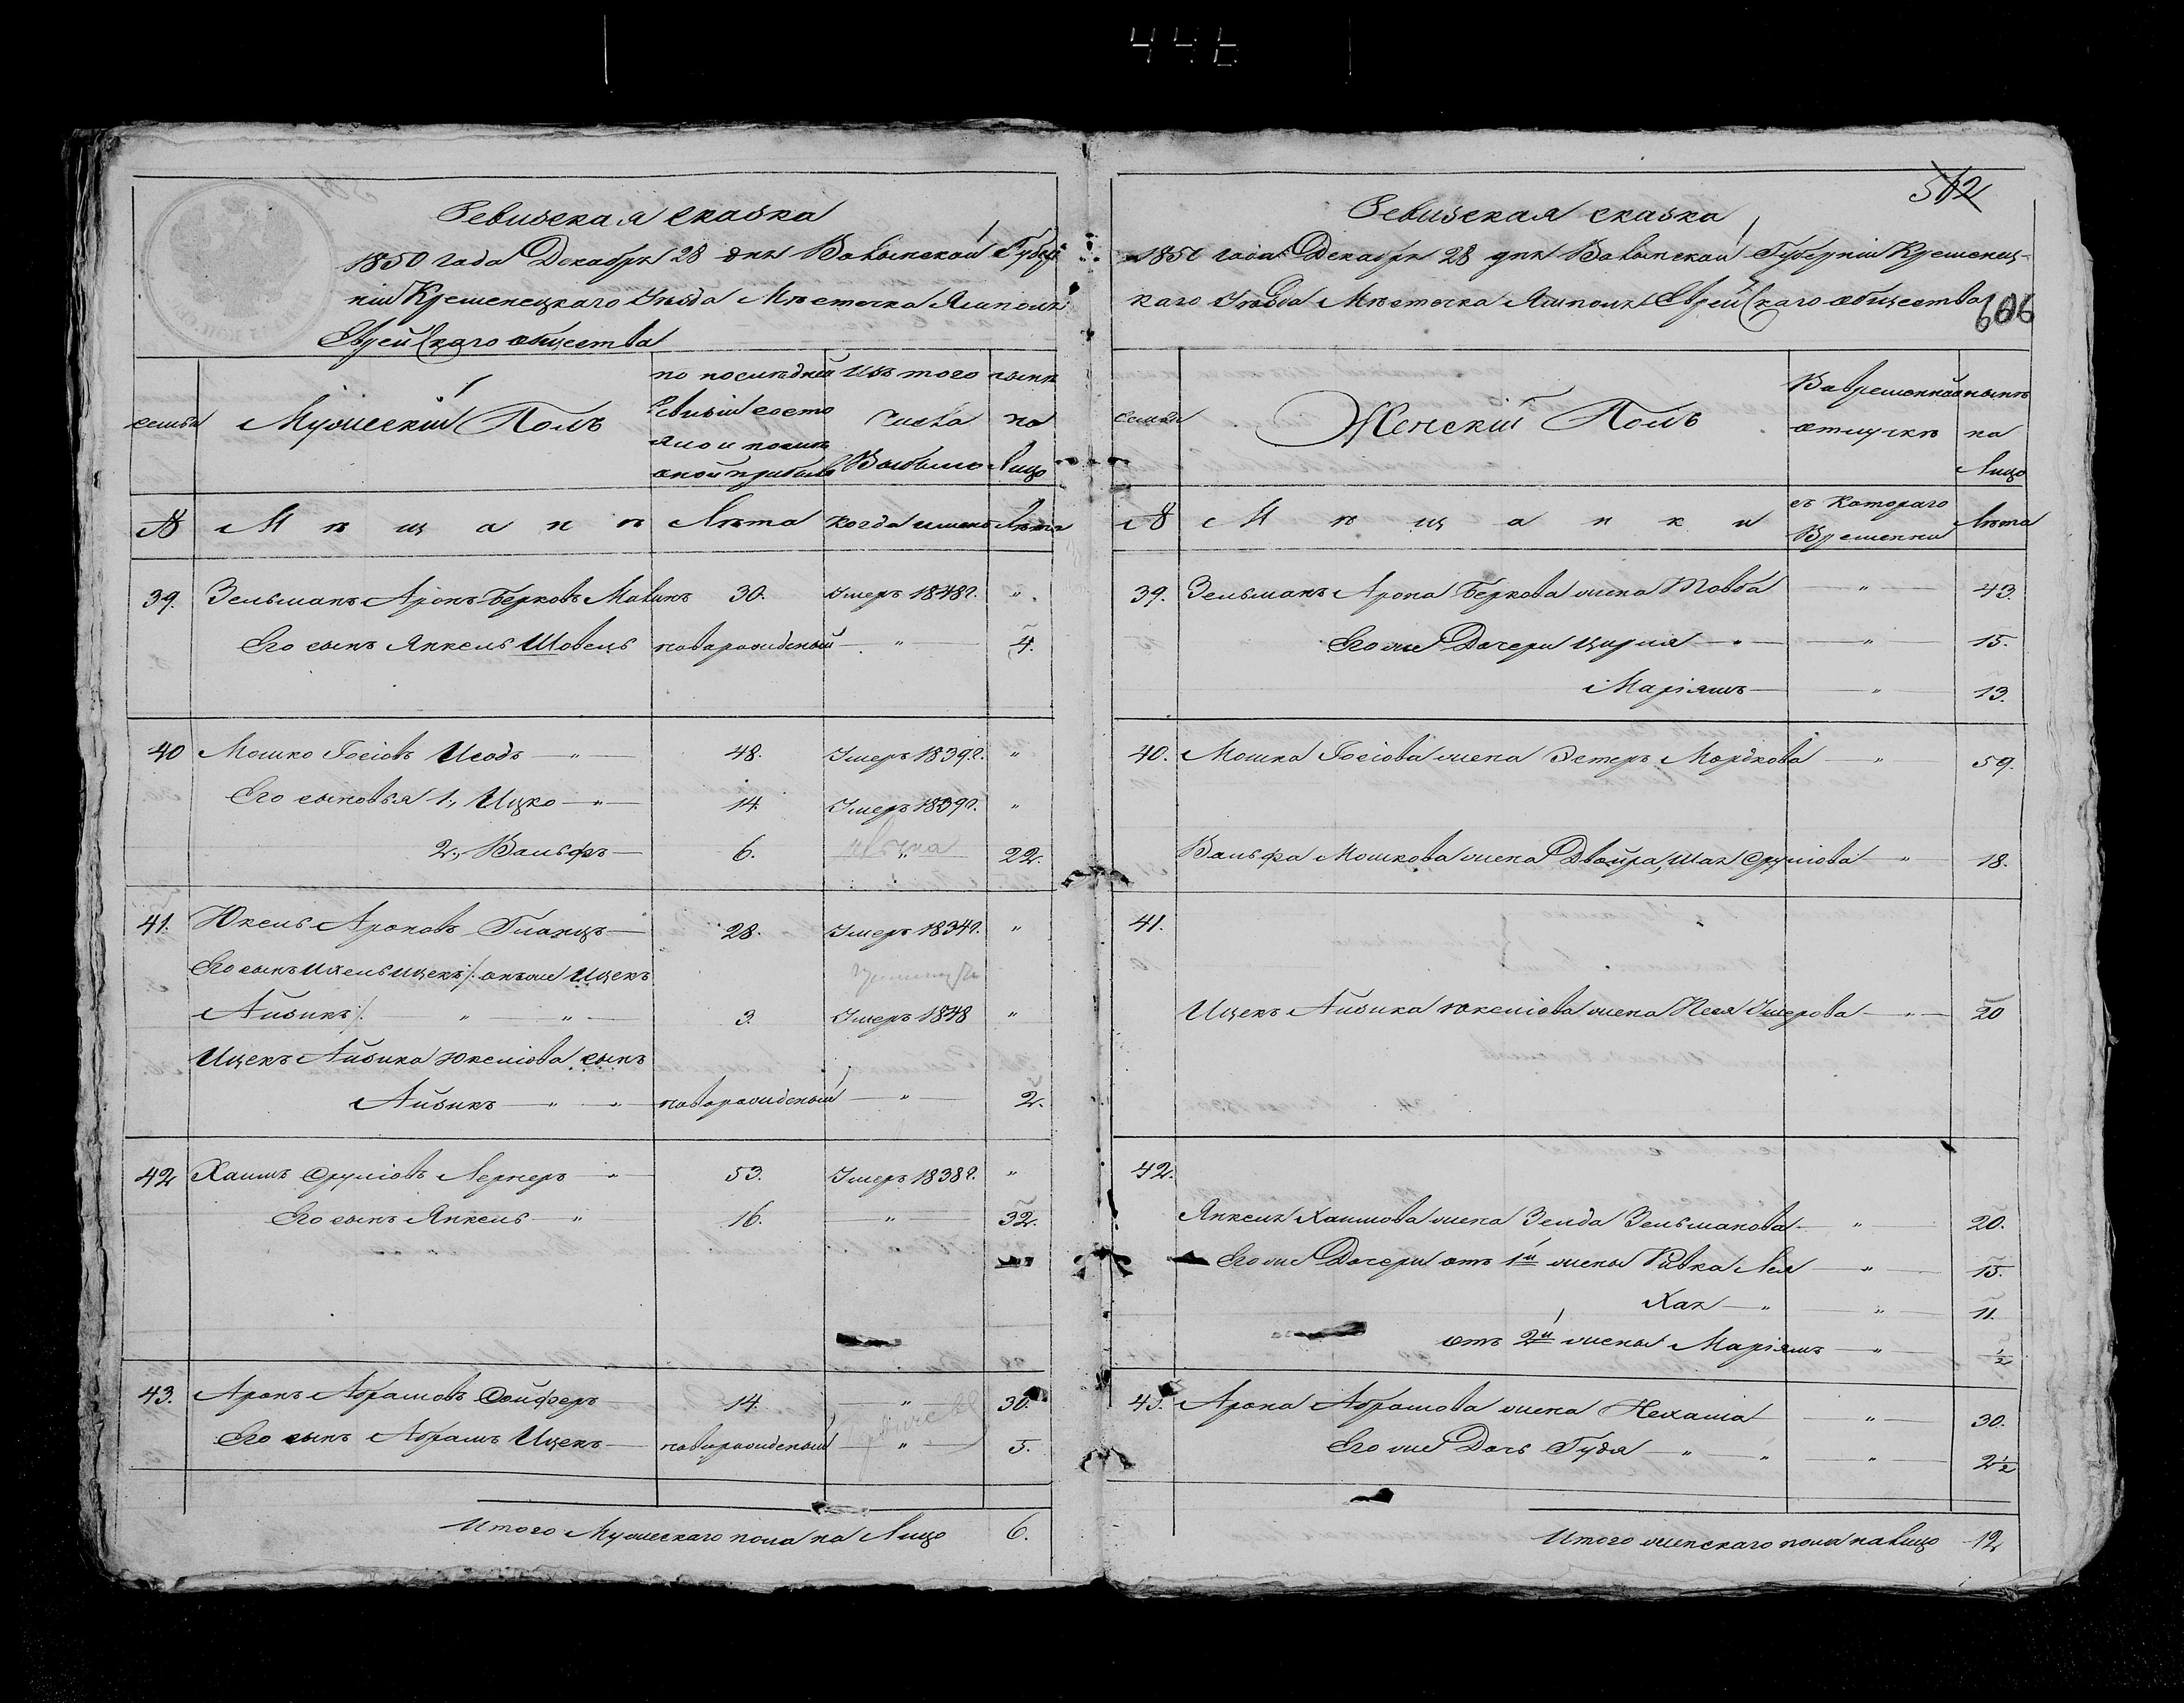 446
Ревизская сказка
1850 года Декабря 28 дня Волынской Губер
ніи Кременецкаго Уѣзда Мѣстечка Ямполя
Еврейскаго общества
семьи
Мужескій Полъ
по последней
Ревизіи состо
яло и после
оной прибыло
Изъ того
Числа
Выбыло
нынѣ
на
Лицо
№
Мѣщане
Лѣта
Когда именно
Лѣта
39. Зельманъ Аронъ Берковъ Малинъ 30. Умеръ 1848г. "
Его сынъ Янкель Шовель новорожденый " 4.
40 Мошко Іосіовъ Исодъ " 48. Умеръ 1839г. "
Его сыновья 1., Ицко " 14. Умеръ 1839г. "
2., Вольфъ 6. " 22.
41. Юкель Ароновъ Гланцъ 28. Умеръ 1834г. "
Его сынъ Ихель Ицекъ /: онъ же Ицекъ
Айзикъ /. " " 3. Умеръ 1848 "
Ицекъ Айзика Юкеліова сынъ
Айзикъ " " новорожденый " 2.
42 Хаимъ Сруліовъ Лернеръ " 53. Умеръ 1838г. "
Его сынъ Янкель " 16. " 32.
43. Аронъ Абрамовъ Сойферъ 14. " 30.
Его сынъ Абрамъ Ицекъ новорожденый " 5.
Итого Мужескаго пола на Лицо 6.
562
Ревизская сказка
1850 года Декабря 28 дня Волынской Губерніи Кременец-
каго Уѣзда Мѣстечка Ямполя Еврейскаго общества
606
Семьи
Женскій Полъ
Во временной
отлучкѣ
нынѣ
на
Лицо
№
Мѣщанки
съ Котораго
Временни
Лѣта
39. Зельманъ Арона Беркова жена Товба " 43.
Его же Дочери Цирля " " 15.
Маріямъ " 13.
40. Мошка Іосіова жена Эстеръ Мордкова " 59.
Вольфа Мошкова жена Двойра, Шая Сруліова " 18.
41. "
Ицекъ Айзика Юкеліова жена Песя Умерова " 20
42.
Янкеля Хаимова жена Зелда Зельманова " 20.
Его же Дочери отъ 1й жены Ривка Лея " 15.
Хая " " 11.
отъ 2й жены Маріямъ " 1/2
43. Арона Абрамова жена Нехама " 30.
Его же Дочь Гудя " " " 2 1/2
Итого женскаго пола на лицо 12